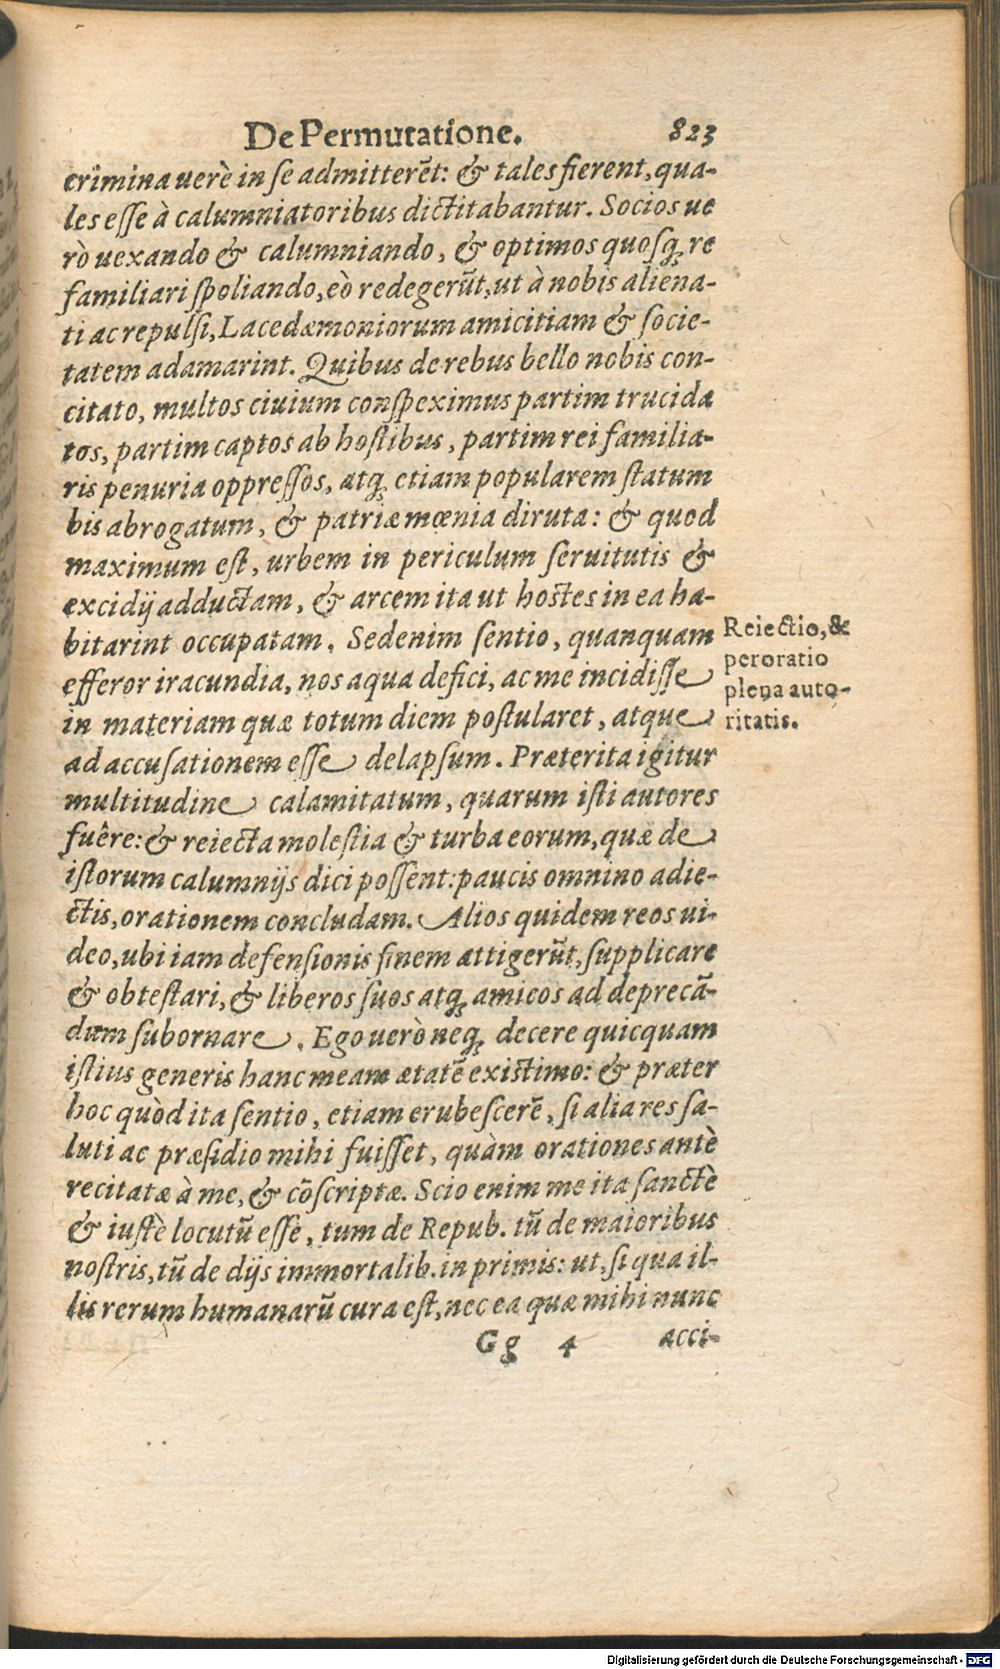 De Permutatione. 823
crimina uerè in se admitterēt: & tales fierent, qua-
les esse à calumniatoribus dictitabantur. Socios ue
rò uexando & calumniando, & optimos quosq; re
familiari spoliando, eò redegerūt, ut à nobis aliena-
ti ac repulsi, Lacedæmoniorum amicitiam & socie-
tatem adamarint. Quibus de rebus bello nobis con-
citato, multos ciuium conspeximus partim trucida
tos, partim captos ab hostibus, partim rei familia-
ris penuria oppressos, atq; etiam popularem statum
bis abrogatum, & patriæ mœnia diruta: & quod
maximum est, urbem in periculum seruitutis &
excidij adductam, & arcem ita ut hostes in ea ha-
bitarint occupatam. Sed enim sentio, quanquam
efferor iracundia, nos aqua defici, ac me incidisse
in materiam quæ totum diem postularet, atque
ad accusationem esse delapsum. Præterita igitur
multitudine calamitatum, quarum isti autores
fuêre: & reiecta molestia & turba eorum, quæ de
istorum calumnijs dici possent: paucis omnino adie-
ctis, orationem concludam. Alios quidem reos ui-
deo, ubi iam defensionis finem attigerūt, supplicare
& obtestari, & liberos suos atq; amicos ad deprecā-
dum subornare. Ego uerò neq; decere quicquam
istius generis hanc meam ætatē existimo: & præter
hoc quòd ita sentio, etiam erubescerē, si alia res sa-
luti ac præsidio mihi fuisset, quàm orationes antè
recitatæ à me, & cōscriptæ. Scio enim me ita sanctè
& iustè locutū esse, tum de Repub. tū de maioribus
nostris, tū de dijs immortalib. in primis: ut, si qua il-
lis rerum humanarū cura est, nec ea quæ mihi nunc
Gg 4 acci-
Reiectio, &
peroratio
plena auto-
ritatis.
Digitalisierung gefördert durch die Deutsche Forschungsgemeinschaft - DFG